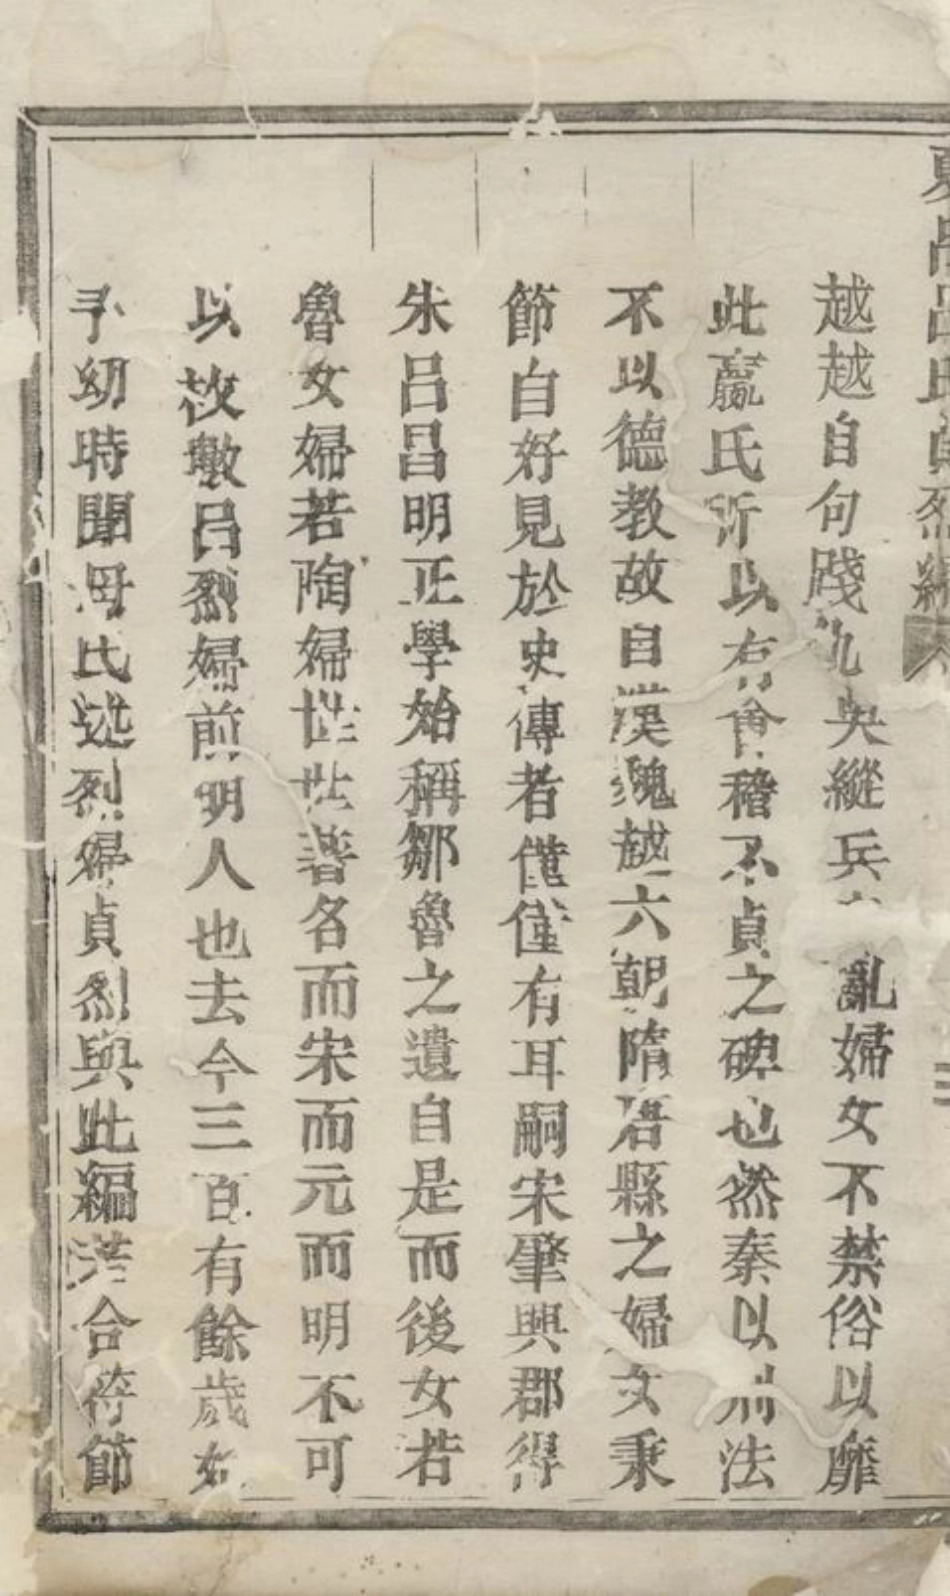 呂氏貞烈編
越越自句踐仇吳縱兵亂婦女不禁俗以靡
此嬴氏所以有會稽不貞之碑也然秦以刑法
不以德教故自漢魏越六朝隋唐縣之婦女秉
節自好見於史傳者僅僅有耳嗣宋肇興郡得
朱呂昌明正學始稱鄒魯之遺自是而後女若
魯女婦若陶婦世世著名而宋而元而明不可
以枚數呂烈婦前明人也去今三百有餘歲
予幼時聞母氏述烈婦貞烈與此編若合符節